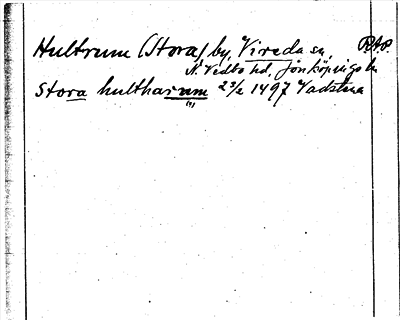 Hultrum (Stora) by, Vireda sn, RAP.
N. Vedbo hd, Jönköpings l.
Stora hultharum 23/2 1497 Vadstena
(!)